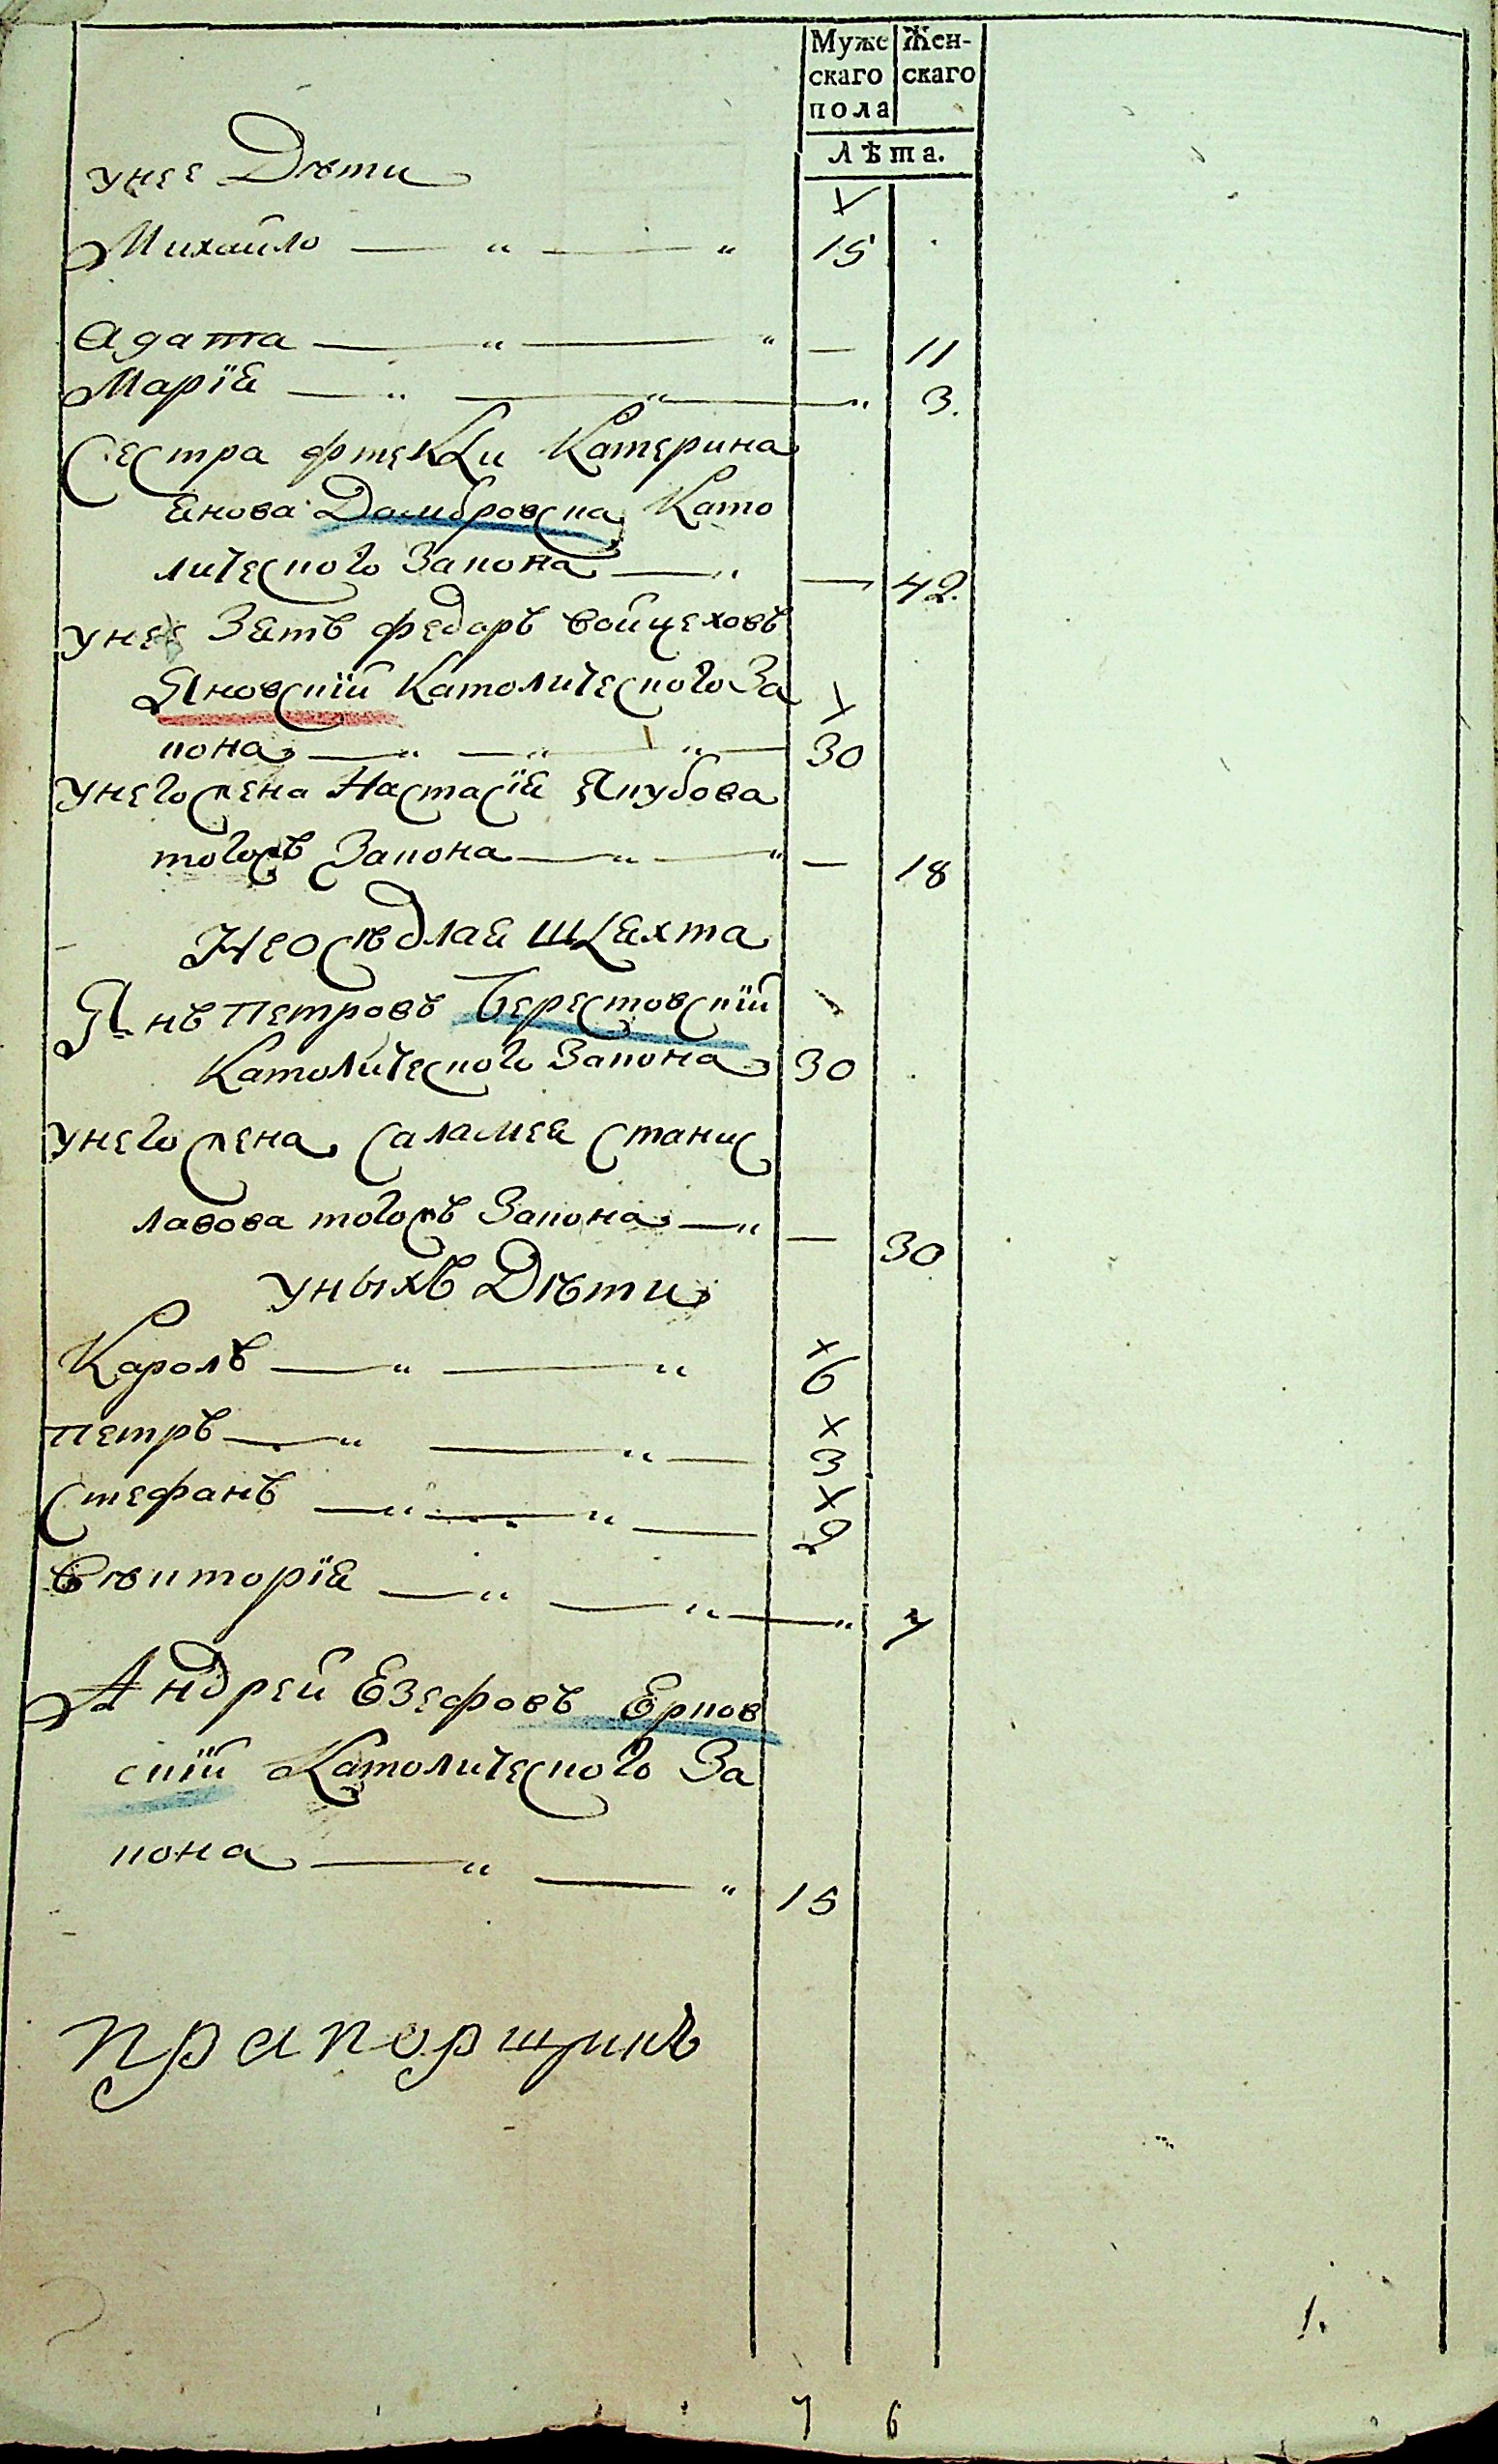 Муже Жен-
скаго скаго
пола
Лѣта.
унее Дѣти
Михайло — " — " 15
Агата — " — " — 11
Марїя — " — " — " 3.
Сестра Фтекли Катерина
Янова Домбровска Като
лического Закона — " — 42
унее Зять Федоръ Войцеховъ
Яновскїй Католического За
кона — " — " — " — 30
унего жена Настасїя Якубова
тогожъ Закона — " — " — 18
Неосѣдлая Шляхта
Янъ Петровъ Берестовскїй
Католического Закона 30
унего жена Саламея Станис
лавова тогожъ Закона — " — 30
уныхъ Дѣти
Кароль — " — " 6
Петръ — " — " — 3
Стефанъ — " — " — 2
Вѣкторїя — " — " — " 7
Андрей Езефовъ Ерков
скїй Католического За
кона — " — " 15
Прапорщикъ
1.
7 6